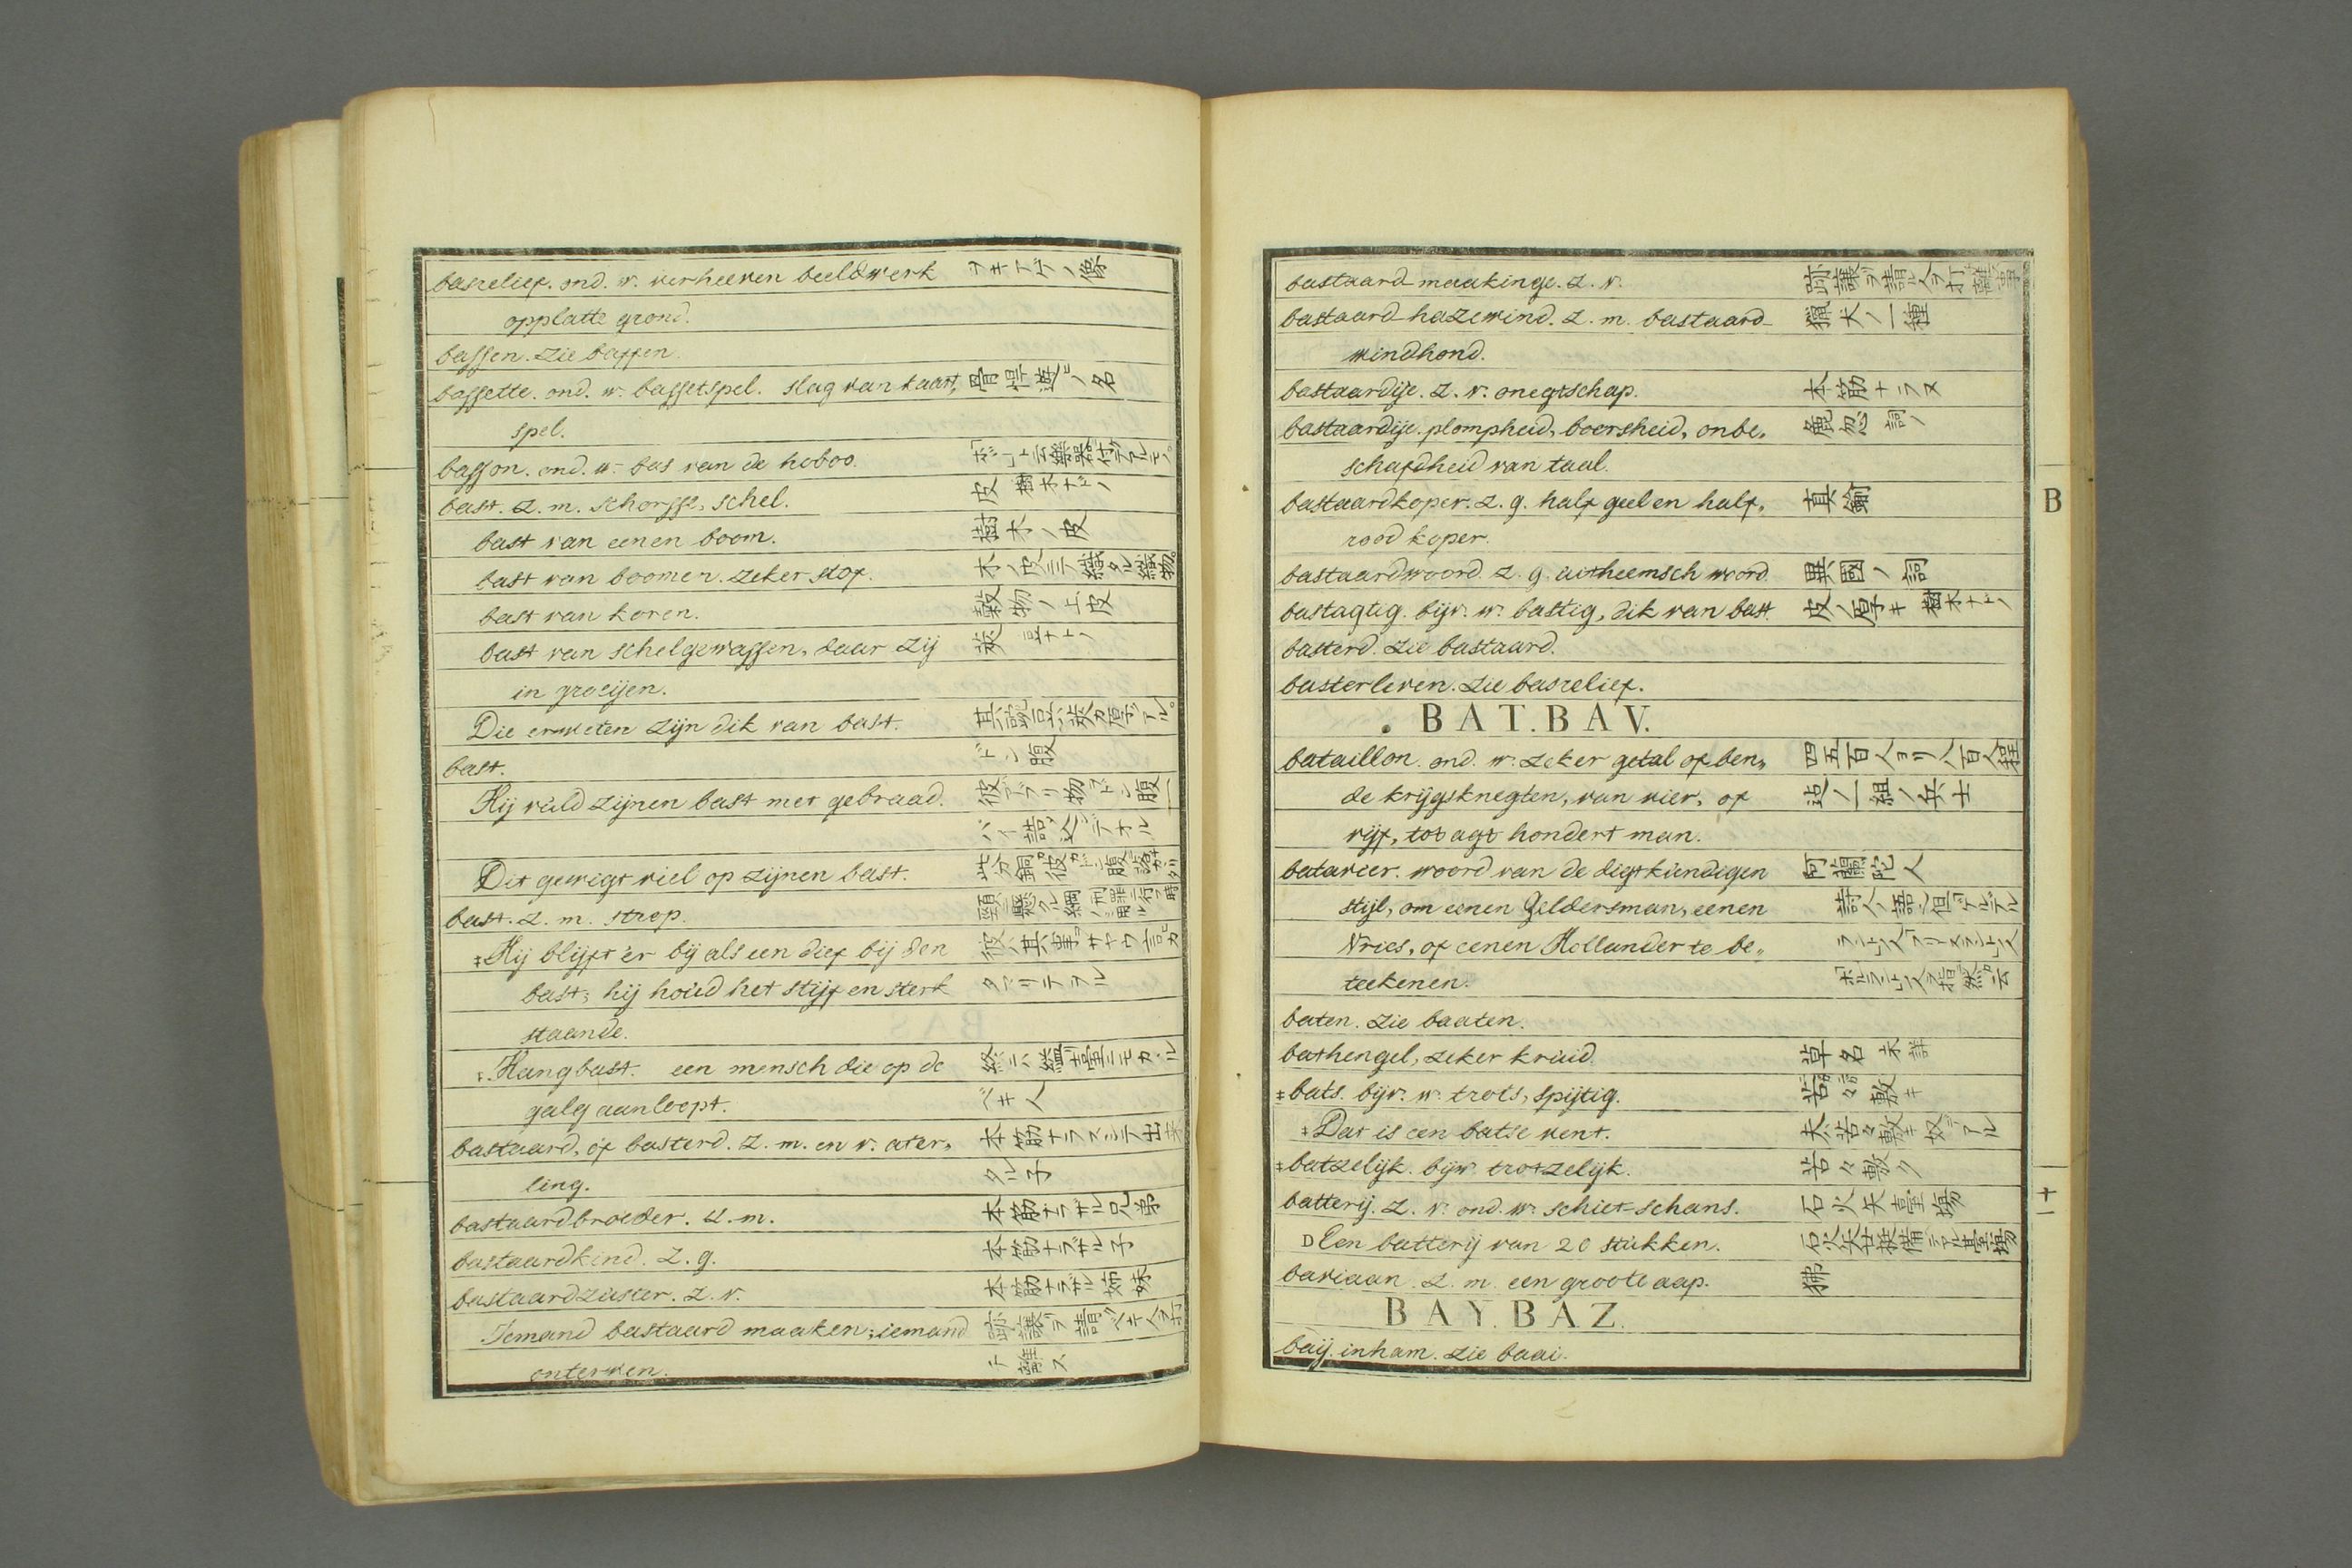 basrelief. ond. w. verheeven beeldwerk ヲキアゲノ像
opplatte grond.
bassen. zie baffen.
bassette. ond. w. bassetspel. slag van kaart, 骨牌遊ビノ名
spel.
basson. ond. w. bas van de hoboo.
bast. z. m. schorsse, schel. 皮 樹木ナドノ
bast van eenen boom. 樹木ノ皮
bast van boomen. zeker stof. 木ノ皮ニテ織タル織物。
bast van koren. 穀物ノ上皮
bast van schelgewassen, daar zij 莢 豆ナドノ
in groeijen.
Die erweten zijn dik van bast. 其豌豆ハ莢ガ厚クアル。
bast. ドン腹
Hij vuld zijnen bast met gebraad. 彼アブリ物ヲドン腹一
パイ詰込デオル
Dit gewigt viel op zijnen bast.
bast. z. m. strop.
‡Hij blijft 'er bij als een dief bij den
bast; hij houd het stijf en sterk タマリテヲル
staande.
‡Hangbast. een mensch die op de
galg aanloopt. ベキ人
bastaard, of basterd. z. m. en v. ater, 本筋ナラズシテ出来
ling. タル子
bastaardbroeder. z. m. 本筋ナラザル兄弟
bastaardkind. z. g. 本筋ナラザル子
bastaardzuster. z. v. 本筋ナラザル姉妹
Iemand bastaard maaken; iemand 跡譲ヲ請ベキ人ヲ打
onterven. テ離ス
bastaard-maakinge. z. v. 跡譲ヲ請ル人ヲ打離ス事
bastaard-hazewind. z. m. bastaard- 猟犬ノ一種
windhond.
bastaardije. z. v. onegtschap. 本筋ナラヌ
bastaardije. plompheid, boersheid, onbe, 麁忽 詞ノ
schafdheid van taal.
bastaardkoper. z. g. half geel en half, 真鍮
rood koper.
bastaardwoord. z. g. uitheemsch woord. 異國ノ詞
bastagtig. bijv. w. bastig, dik van bast. 皮ノ厚キ 樹木ナドノ
basterd. zie bastaard.
basterleven. zie basrelief.
BAT. BAV.
bataillon. ond. w. zeker getal of ben,, 四五百人ヨリ八百人程
de krijgsknegten, van vier, of 迄ノ一組ノ兵士
vijf, tot agt hondert man.
batavier. woord van de digtkundigen 阿蘭陀人
stijl, om eenen Geldersman, eenen
Vries, of eenen Hollander te be,,
teekenen.
baten. zie baaten.
bathengel, zeker kruid. 草名 未詳
‡bats. bijv. w. trots, spijtig. 苦々敷キ
‡Dat is een batse vent. 太苦々敷キ奴デアル
‡batzelijk. bijw. trotzelijk. 苦々敷ク
batterij. z. v. ond. w. schiet-schans. 石火矢臺場
D Een batterij van 20 stukken.
baviaan. z. m. een groote aap. 狒
BAY. BAZ.
baij. inham. zie baai.
B
十一